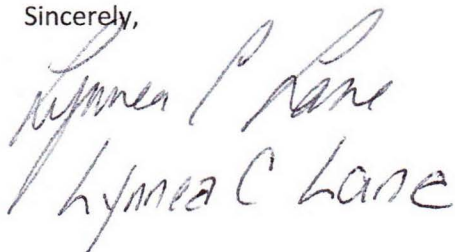 Sincerely,
Lynnea C Lane
Lynnea C Lane